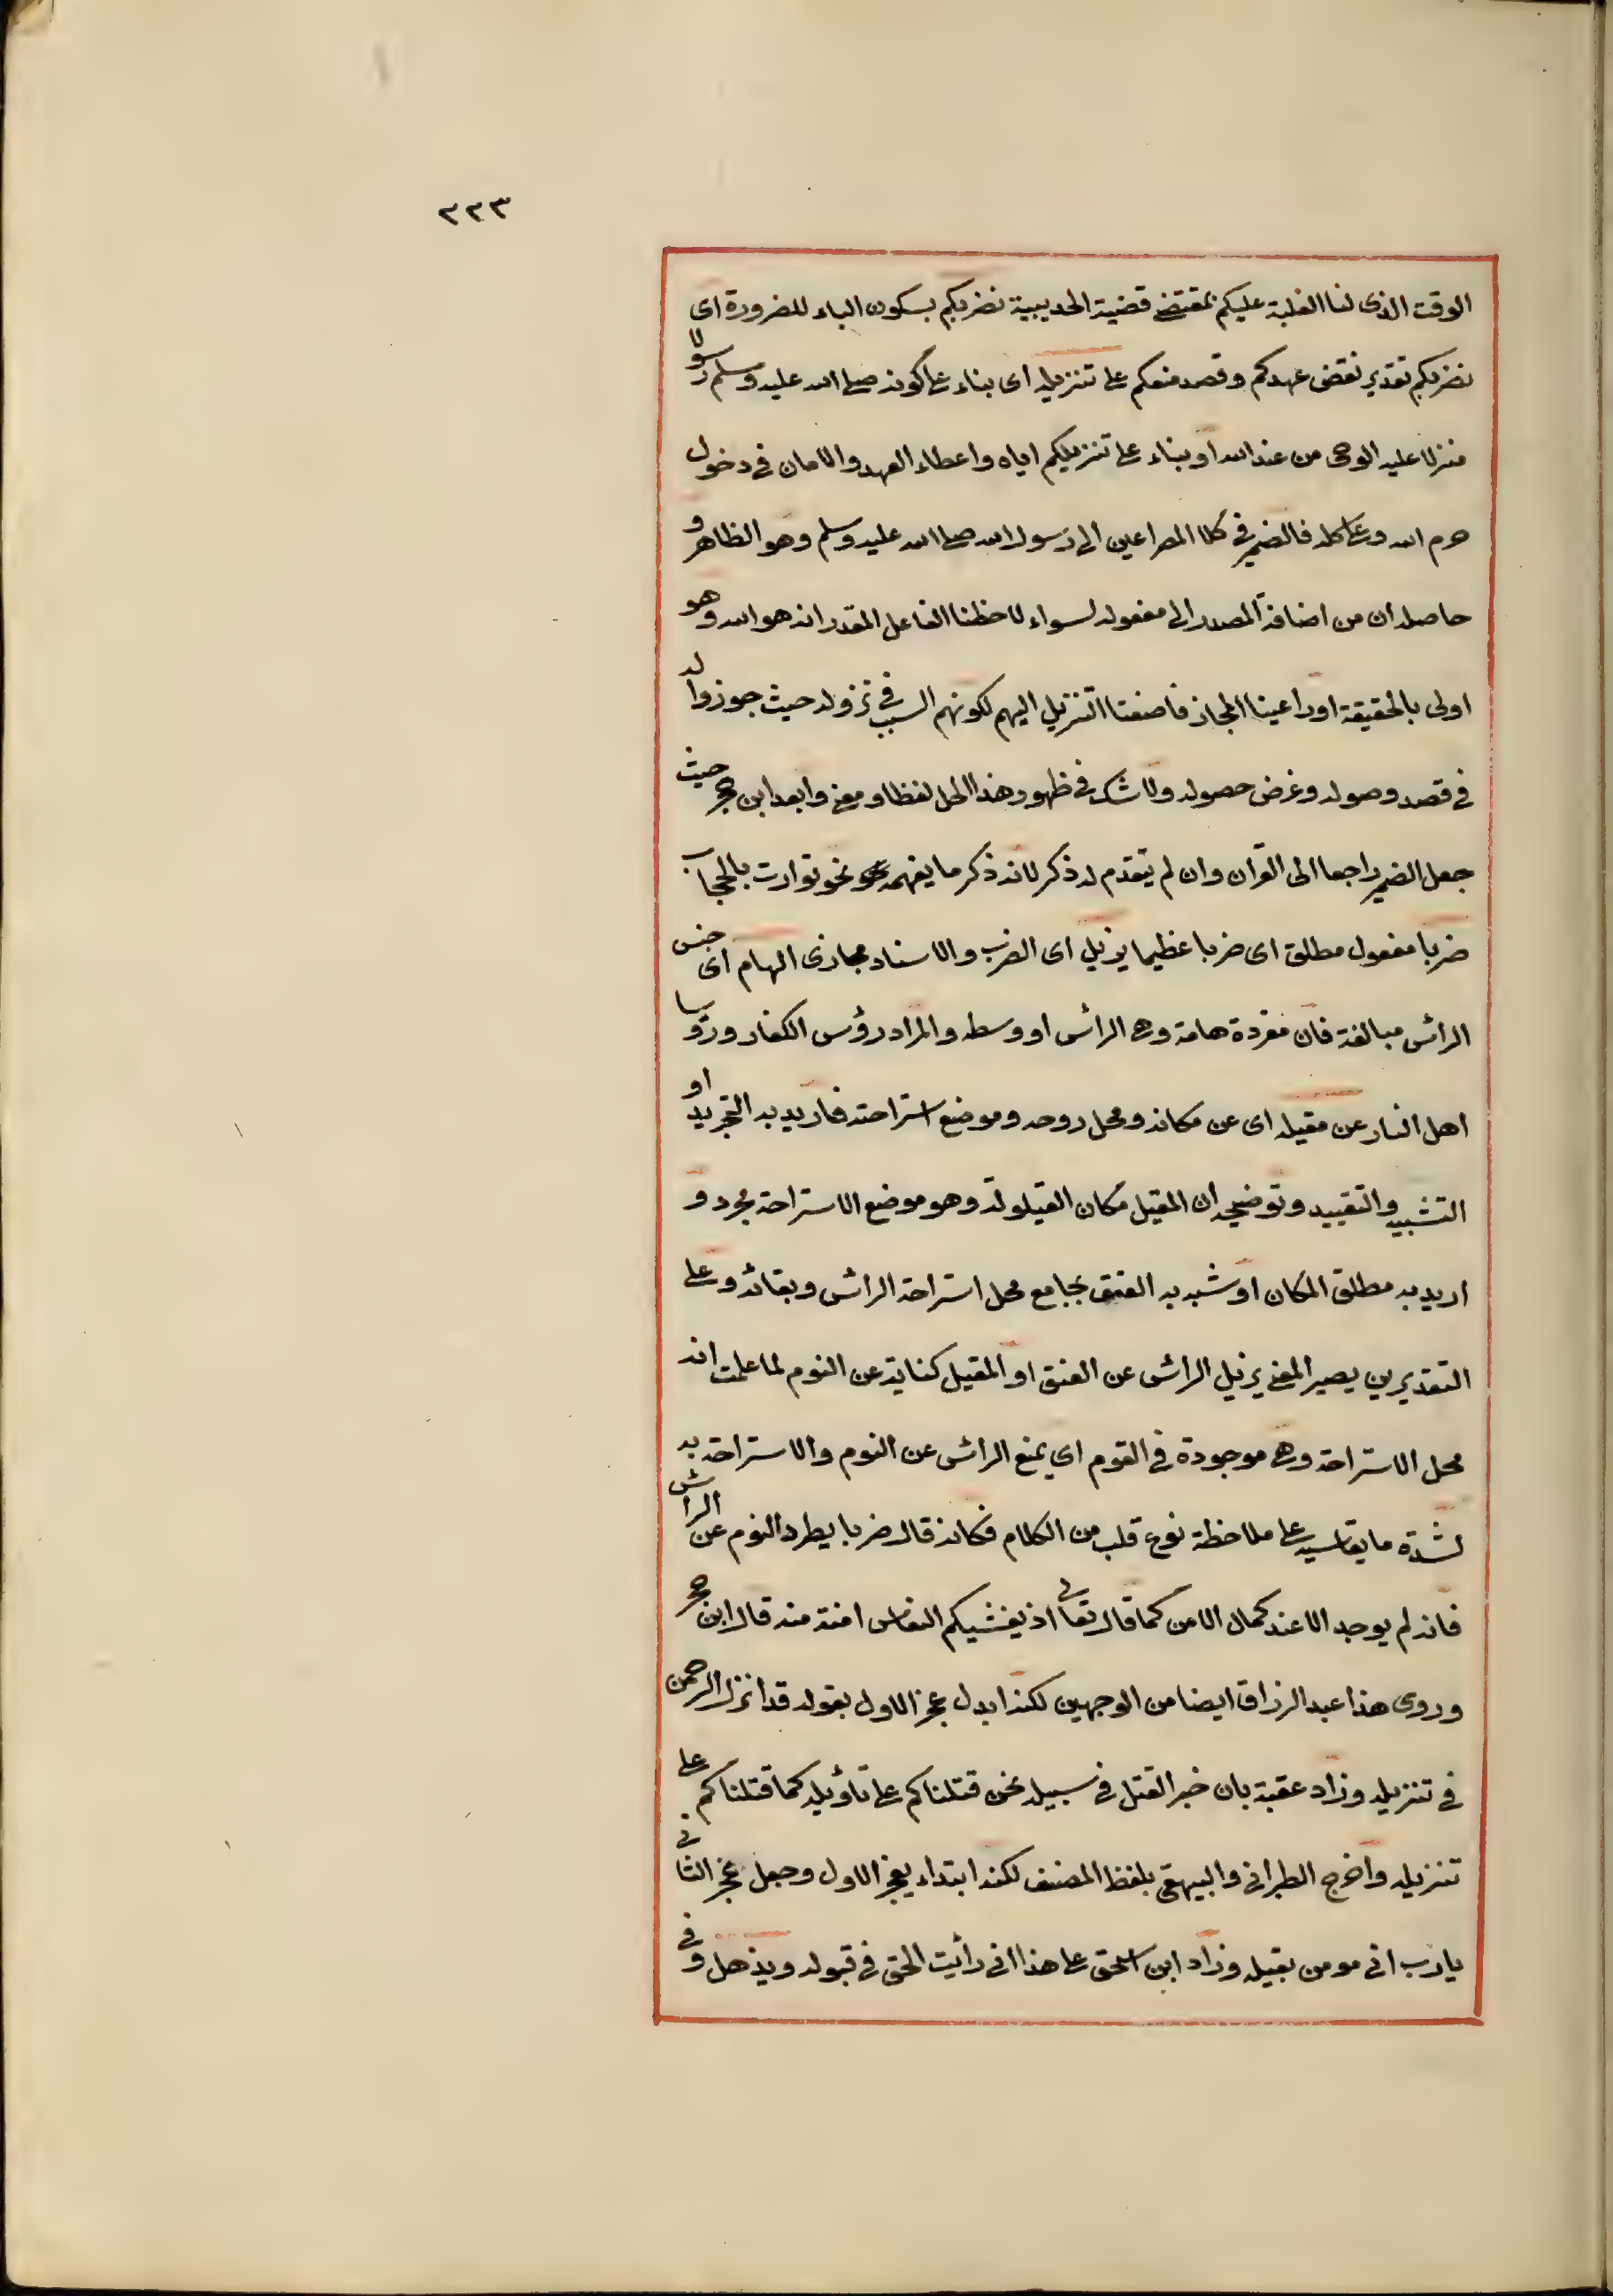 ٢٢٣
الوقت الذى لنا الغلبة عليكم بمقتضى قضية الحديبية نضربكم بسكون الباء للضرورة اى
نضربكم تقدير نقض عهدكم وقصد منعكم على تنزيله اى بناء على كونه صلى الله عليه وسلم رسولا
منزلا عليه الوحى من عند الله او بناء على تنزيلكم اياه واعطاء العهد والامان فى دخول
حرم الله وعلى كله فالضمير فى كلا المصراعين الى رسول الله صلى الله عليه وسلم وهو الظاهر و
حاصله ان من اضافة المصدر الى مفعوله لسواء لاحظنا الفاعل المقدر انه هو الله وهو
اولى بالحقيقة او راعينا المجاز فاضفنا التنزيل اليهم لكونهم السبب فى نزوله حيث جوزوا له
فى قصد وصوله وغرض حصوله ولا شك فى ظهور هذا الحل لفظا ومعنى وابعد ابن حجر حيث
جعل الضمير راجعا الى القرآن وان لم يتقدم له ذكر لانه ذكر ما يفهمه نحو توارت بالحجاب
ضربا مفعول مطلق اى ضربا عظيما يزيل اى الضرب والاسناد مجازى الهام اى جنس
الرأس مبالغة فان مفردة هامة وهى الرأس او وسطه والمراد رؤس الكفار ورؤسا
اهل النار عن مقيله اى عن مكانه ومحل روحه وموضع استراحته فاريد به التجريد او
التشبيه والتقييد وتوضيحه ان المقيل مكان القيلولة وهو موضع الاستراحة مجرد و
اريد به مطلق المكان او شبه به العنق بجامع محل استراحة الرأس وبقائه وعلى
التقديرين يصير المعنى يزيل الرأس عن العنق او المقيل كناية عن النوم لما علمت انه
محل الاستراحة وهى موجودة فى القوم اي يمنع الرأس عن النوم والاستراحة به
لشدة ما يقاسيه على ملاحظة نوع قلب من الكلام فكانه قال ضربا يطرد النوم عن الرأس
فانه لم يوجد الا عند كمال الامن كما قال تعالى اذ يغشيكم النعاس امنة منه قال ابن حجر
وروى هذا عبد الرزاق ايضا من الوجهين لكنه ابدل عجز الاول بقوله قد انزل الرحمن
فى تنزيله وزاد عقبة بان خير القتل فى سبيله نحن قتلناكم على تأويله كما قتلناكم على
تنزيله واخرج الطبرانى والبيهقى بلفظ المصنف لكنه ابتداء بعجز الاول وجعل عجز الثانى
يا رب انى مومن بقيله وزاد ابن اسحق على هذا انى رأيت الحق فى قبوله ويذهل وفى